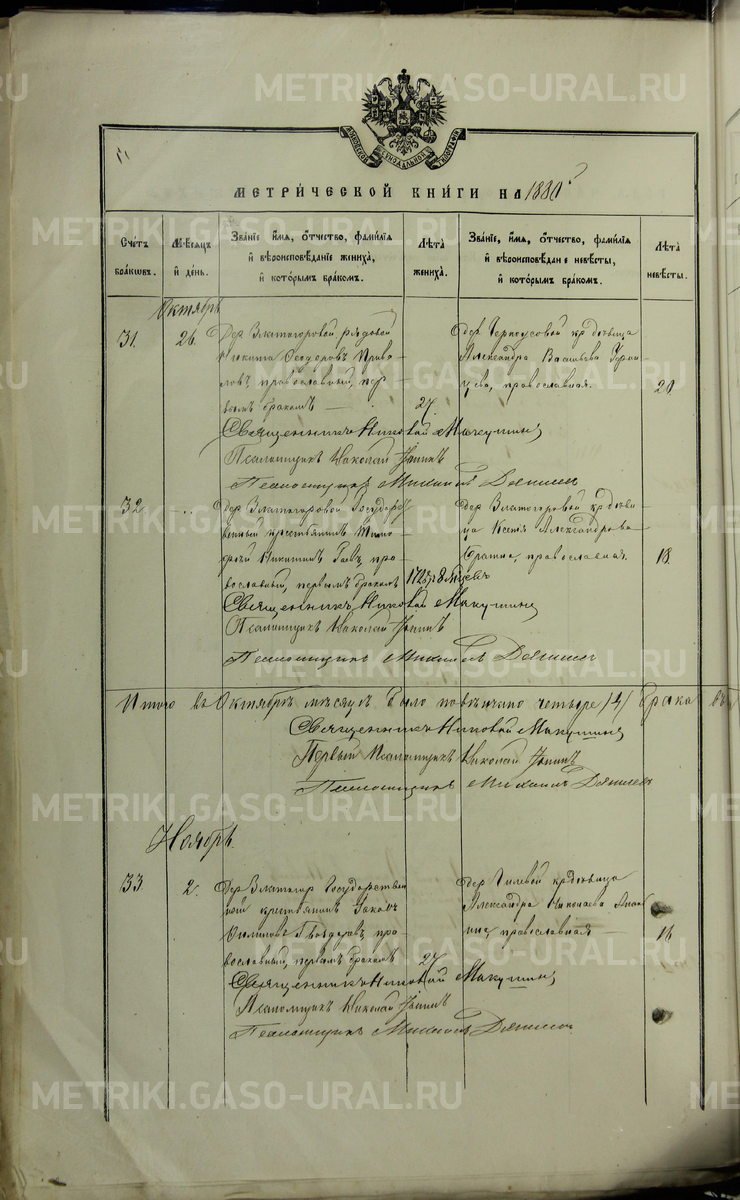 МОСКОВСКОЙ СѴНОДАЛЬНОЙ ТИПОГРАФІИ
МЕТРИ́ЧЕСКОЙ КНИ́ГИ НА 1880 г.
Сче́тъ бра́ковъ.
Мѣ́сяцъ и́ де́нь.
Зва́нїе, и́мя, о́тчество, фами́лїя и́ вѣроисповѣ́данїе жениха̀, и́ кото́рымъ бра́комъ.
Лѣ́та жениха̀.
Зва́нїе, и́мя, о́тчество, фами́лїя и́ вѣроисповѣ́данїе невѣ́сты, и́ кото́рымъ бра́комъ.
Лѣ́та невѣ́сты.
Октябрь
31. 26.
Дер. Златогоровой, рядовой
Никита Ѳеодоровъ
православный, пер-
вымъ бракомъ
27.
Дер. Черноусовой кр. дѣвица
Александра Васильева
православная.
20
Священникъ Никовай Макушинъ
Псаломщикъ Николай
Псаломщикъ Михаилъ
32
Дер. Златогоровой Государст-
венный крестьянинъ Тимо-
фей Никитинъ пра-
вославный, первымъ бракомъ
17 8 мѣсяцевъ
Дер. Златогоровой кр. дѣви-
ца Ксенія Александрова
православная.
18.
Священникъ Никовай Макушинъ
Псаломщикъ Николай
Псаломщикъ Михаилъ
Итого въ Октябрѣ мѣсяцѣ было повѣнчано четыре /4/ брака
Священникъ Никовай Макушинъ
Первый Псаломщикъ Николай
Псаломщикъ Михаилъ
Ноябрь.
33 2.
Дер. Златогор. Государствен-
ный крестьянинъ
пра-
вославный, первымъ бракомъ
27
Дер. Гилевой кр. дѣвица
Александра Николаева
православная
16
Священникъ Никовай Макушинъ
Псаломщикъ Николай
Псаломщикъ Михаилъ
METRIKI.GASO-URAL.RU